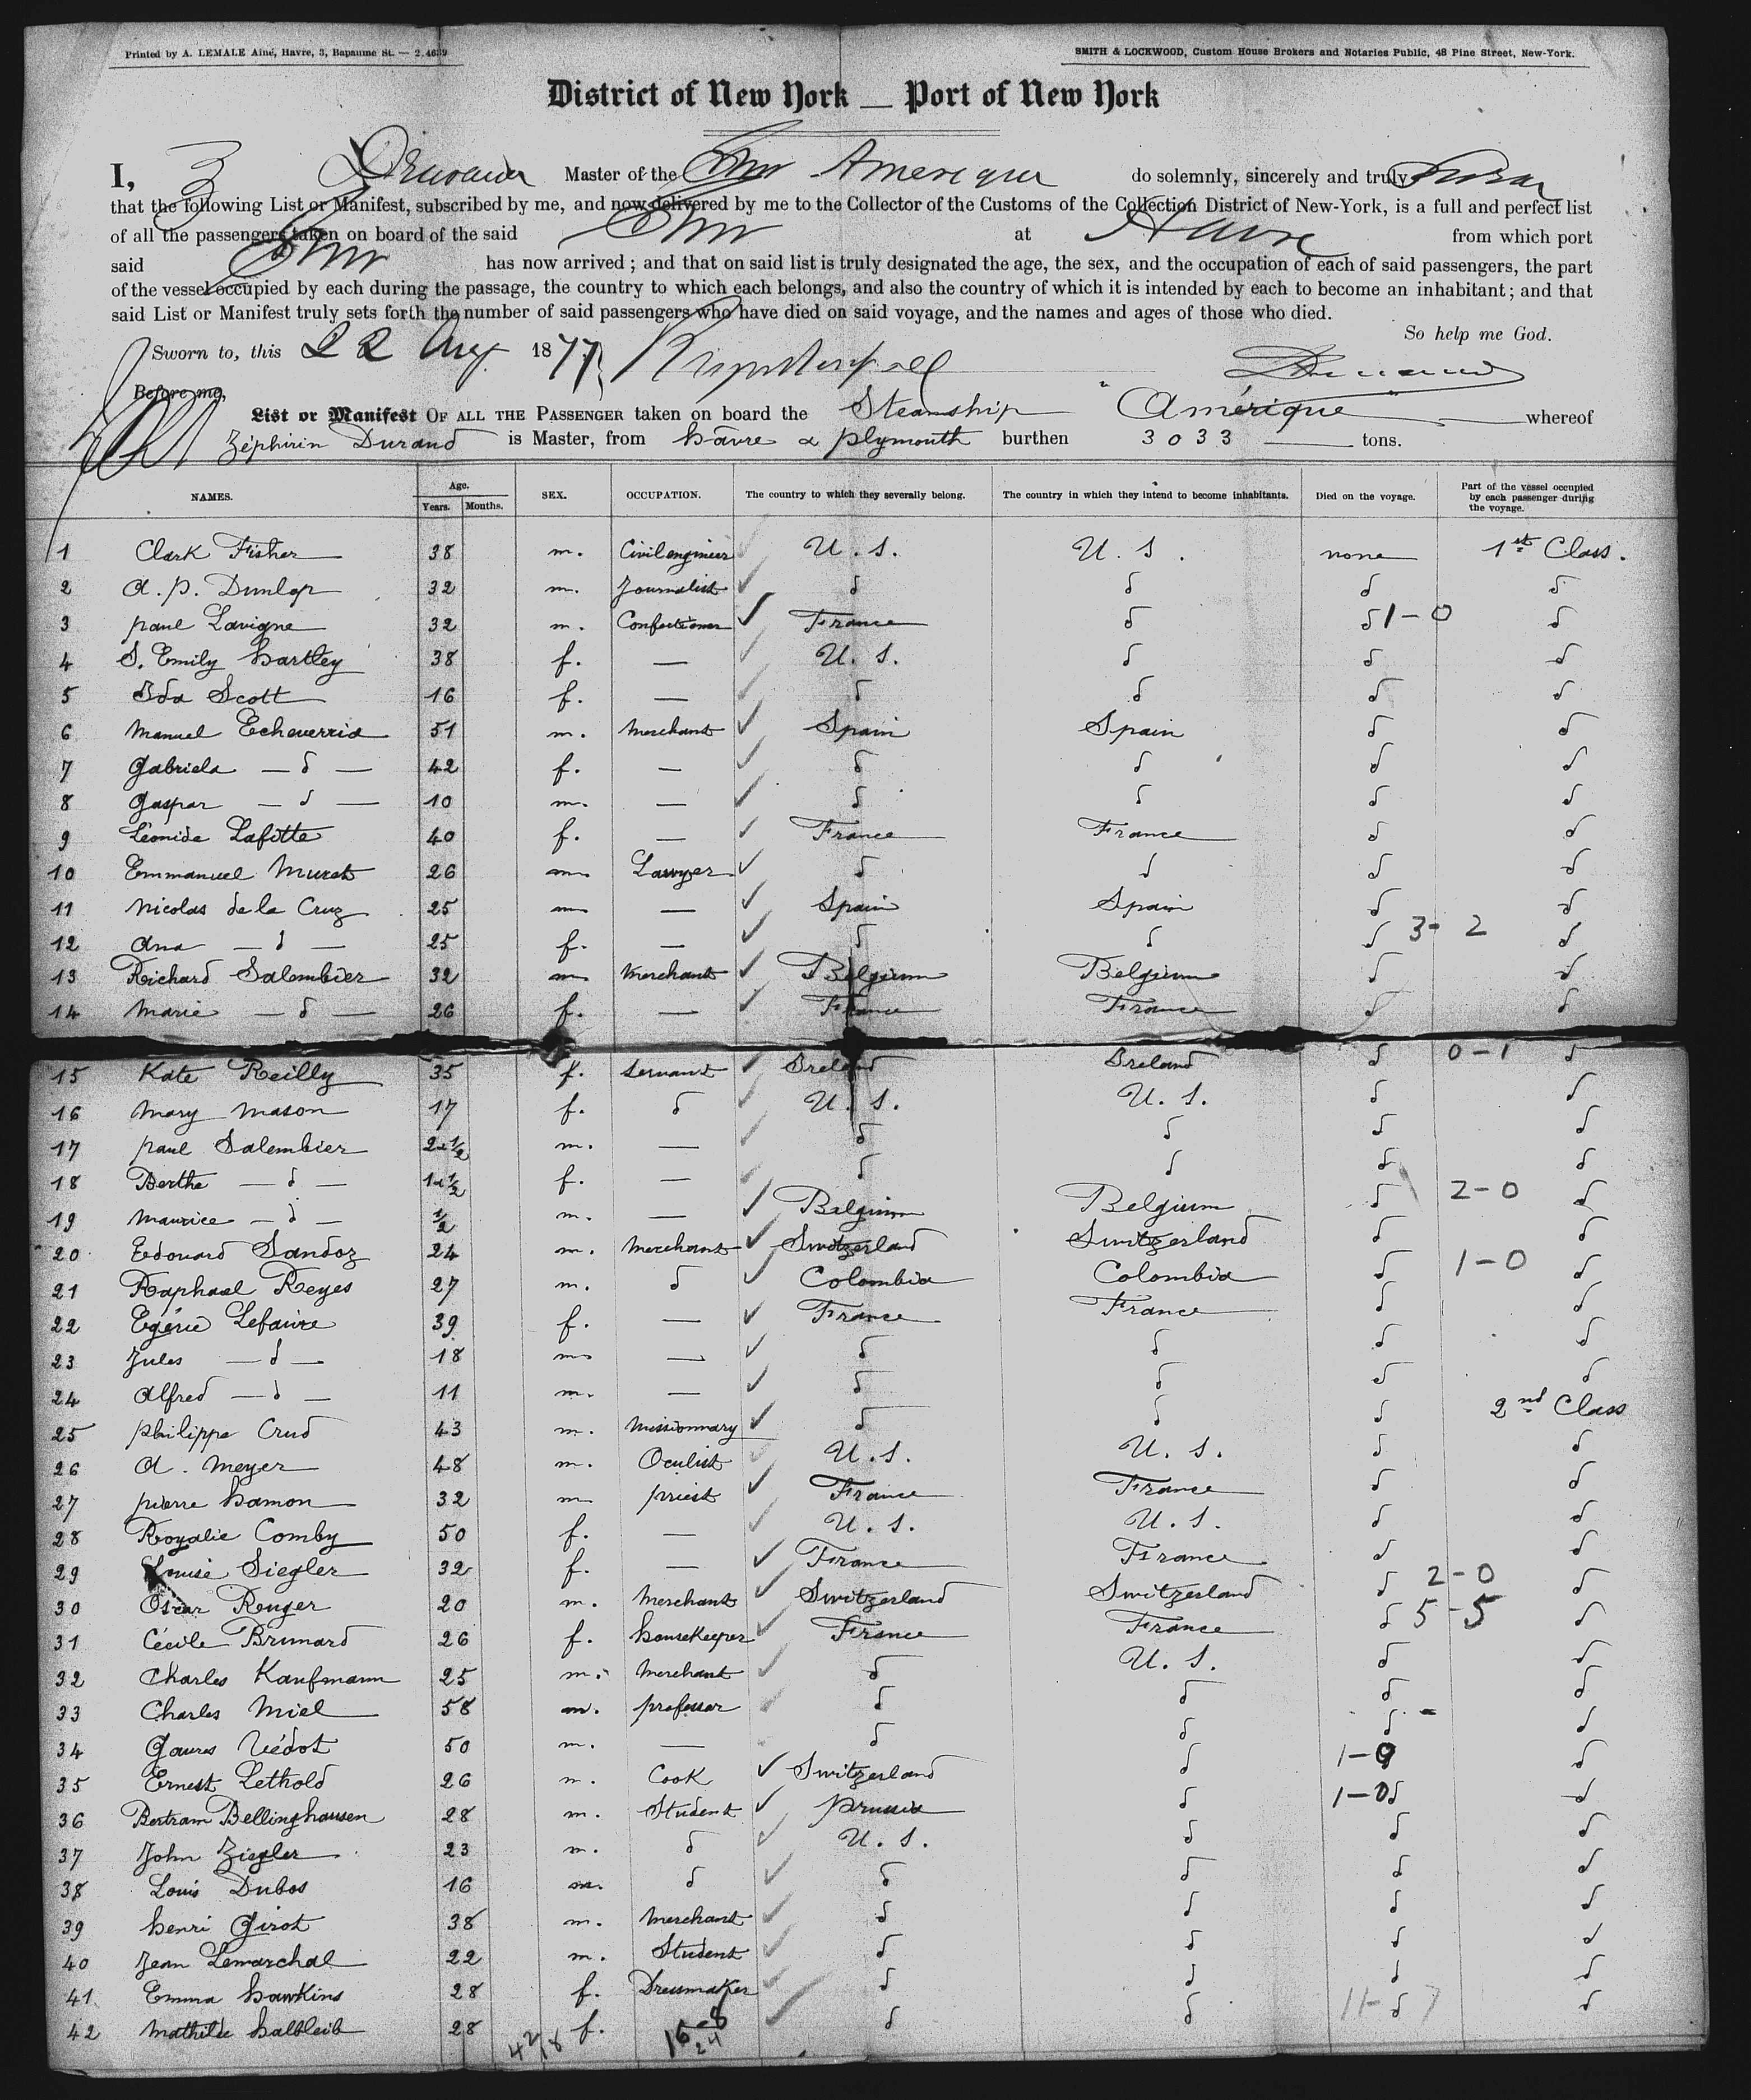 Printed by A. LEMALE Aîné, Havre, 3, Bapaume St. — 2.4639
SMITH & LOCKWOOD, Custom House Brokers and Notaries Public, 48 Pine Street, New-York.
District of New York — Port of New York
I, Z Durand Master of the Str Amerique do solemnly, sincerely and truly swear
that the following List or Manifest, subscribed by me, and now delivered by me to the Collector of the Customs of the Collection District of New-York, is a full and perfect list
of all the passengers taken on board of the said Str at Havre from which port
said Str has now arrived; and that on said list is truly designated the age, the sex, and the occupation of each of said passengers, the part
of the vessel occupied by each during the passage, the country to which each belongs, and also the country of which it is intended by each to become an inhabitant; and that
said List or Manifest truly sets forth the number of said passengers who have died on said voyage, and the names and ages of those who died.
So help me God.
Sworn to, this 22 Aug 1877
Durand
Before me,
List or Manifest OF ALL THE PASSENGER taken on board the Steamship "Amérique" whereof
Zéphirin Durand is Master, from hâvre & plymouth burthen 3033 tons.
NAMES. Age. Years. Months. SEX. OCCUPATION. The country to which they severally belong. The country in which they intend to become inhabitants. Died on the voyage. Part of the vessel occupied by each passenger during the voyage.
1 Clark Fisher 38 m. Civil engineer U. S. U. S. none 1st Class.
2 A. P. Dunlop 32 m. Journalist d d d d
3 paul Lavigne 32 m. Confectioner France d d 1-0 d
4 S. Emily hartley 38 f. — U. S. d d d
5 Ida Scott 16 f. — d d d d
6 Manuel Echeverria 51 m. Merchant Spain Spain d d
7 Gabriela — d — 42 f. — d d d d
8 Gaspar — d — 10 m. — d d d d
9 Léonide Lafitte 40 f. — France France d d
10 Emmanuel Murat 26 m Lawyer d d d d
11 Nicolas de la Cruz 25 m — Spain Spain d d
12 Ana — d — 25 f. — d d d 3-2 d
13 Richard Salembier 32 m Merchant Belgium Belgium d d
14 Marie — d — 26 f. — France France d d
15 Kate Reilly 35 f. Servant Ireland Ireland d 0-1 d
16 Mary Mason 17 f. d U. S. U. S. d d
17 paul Salembier 2 & 1/2 m. — d d d d
18 Berthe — d — 1 & 1/2 f. — d d d d
19 Maurice — d — 1/2 m. — Belgium Belgium d 2-0 d
20 Edouard Sandoz 24 m. Merchant Switzerland Switzerland d d
21 Raphael Reyes 27 m. d Colombia Colombia d 1-0 d
22 Egérie Lefaivre 39 f. — France France d d
23 Jules — d — 18 m — d d d d
24 Alfred — d — 11 m. — d d d d
25 philippe Crud 43 m. Missionnary d d d 2nd Class
26 A. Meyer 48 m. Oculist U. S. U. S. d d
27 pierre hamon 32 m priest France France d d
28 Rogalie Comby 50 f. — U. S. U. S. d d
29 Louise Siegler 32 f. — France France d d
30 Oscar Renger 20 m. Merchant Switzerland Switzerland d 2-0 d
31 Cécile Brunard 26 f. housekeeper France France d 5-5 d
32 Charles Kaufmann 25 m. Merchant d U. S. d d
33 Charles Miel 58 m. professor d d d d
34 Védot 50 m. — d d d d
35 Ernest Lethold 26 m. Cook Switzerland d 1-0 d
36 Bertram Bellinghausen 28 m. Student prussia d 1-0 d d
37 John Ziegler 23 m. d U. S. d d d
38 Louis Dubos 16 m. d d d d d
39 henri Girot 38 m. Merchant d d d d
40 Jean Lemarchal 22 m. Student d d d d
41 Emma hawkins 28 f. Dressmaker d d d d
42 Mathilde halbleib 28 f. d d 11-7 d d
42 18 16-8
24